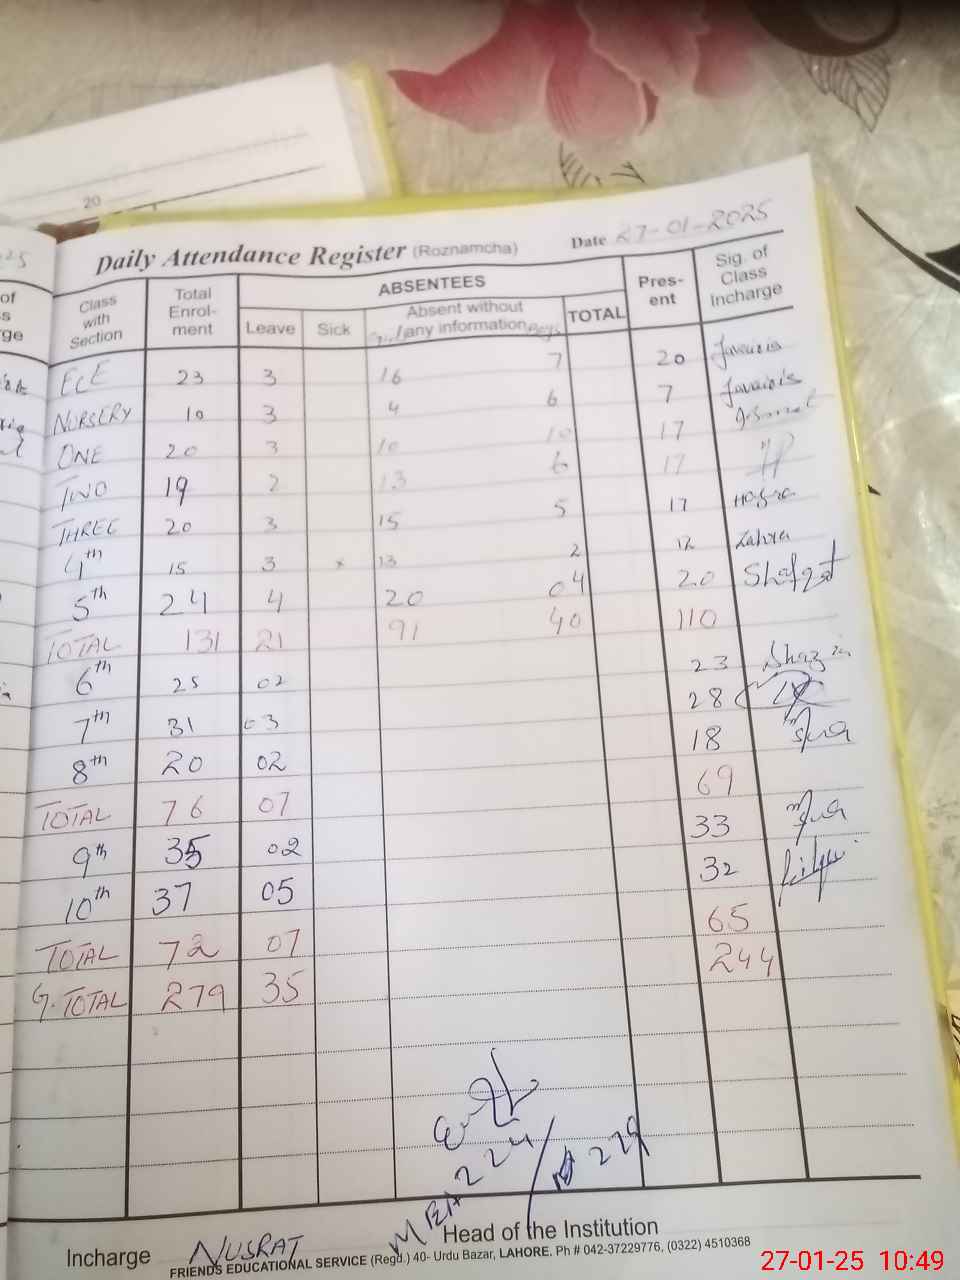 20
25
Daily Attendance Register (Roznamcha) Date 27-01-2025
of
s
ge
Class with Section Total Enrol-ment ABSENTEES Pres-ent Sig. of Class Incharge
Leave Sick Absent without any information TOTAL
Girls Boys
ECE 23 3 16 7 20 Javairia
NURSERY 10 3 4 6 7 Javairia
ONE 20 3 10 10 17
TWO 19 2 13 6 17
THREE 20 3 15 5 17 Hafsa
4th 15 3 × 13 2 12 Zahra
5th 24 4 20 04 20 Shafqat
TOTAL 131 21 91 40 110
6th 25 02 23 Shazia
7th 31 03 28
8th 20 02 18
TOTAL 76 07 69
9th 35 02 33
10th 37 05 32
TOTAL 72 07 65
G.TOTAL 279 35 244
224/ 229
Incharge NUSRAT Head of the Institution
FRIENDS EDUCATIONAL SERVICE (Regd.) 40- Urdu Bazar, LAHORE. Ph # 042-37229776, (0322) 4510368
27-01-25 10:49